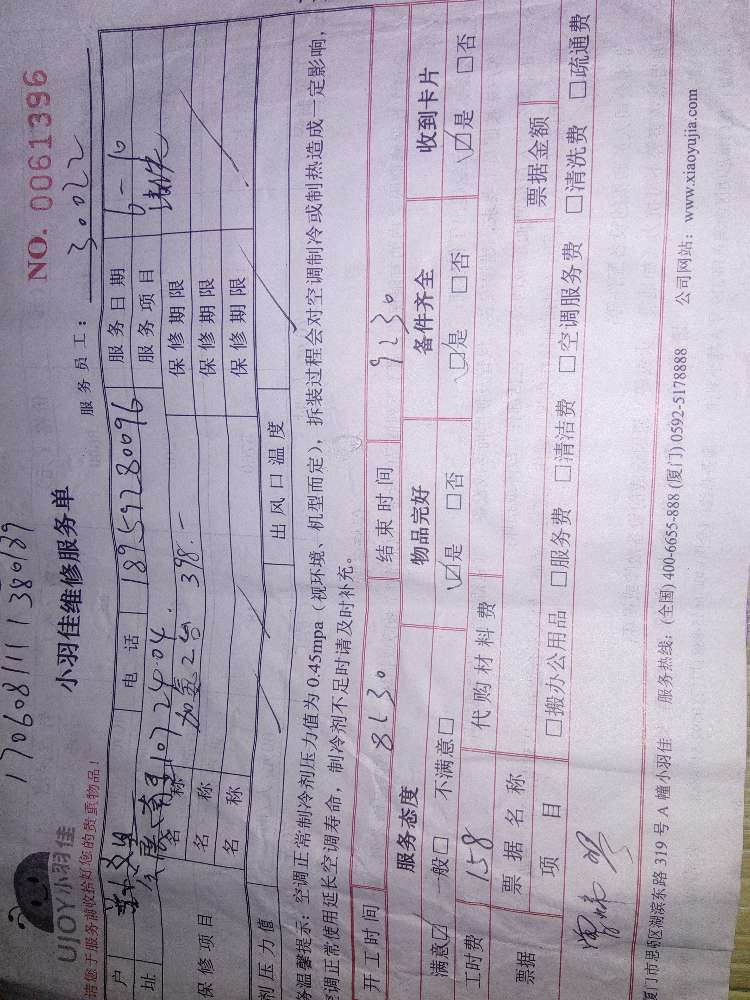 170608111380139
NO. 0061396
UJOY小羽佳
小羽佳维修服务单
服务员工： 30022
请您于服务前收拾好您的贵重物品！
户 电话 18959280096 服务日期 6-10
址 107 2404 服务项目
保修项目 名称 加氨2台 398.- 保修期限
名称 保修期限
名称 保修期限
剂压力值 出风口温度
务温馨提示：空调正常制冷剂压力值为 0.45mpa（视环境、机型而定），拆装过程会对空调制冷或制热造成一定影响，
空调正常使用延长空调寿命，制冷剂不足时请及时补充。
开工时间 8:30 结束时间 9:30
服务态度 物品完好 备件齐全 收到卡片
满意☑ 一般□ 不满意□ ☑是 □否 ☑是 □否 ☑是 □否
工时费 158 代购材料费
票据 票据名称 票据金额
项目 □搬办公用品 □服务费 □清洁费 □空调服务费 □清洗费 □疏通费
厦门市思明区湖滨东路 319 号 A 幢小羽佳 服务热线：(全国) 400-6655-888 (厦门) 0592-5178888 公司网站：www.xiaoyujia.com